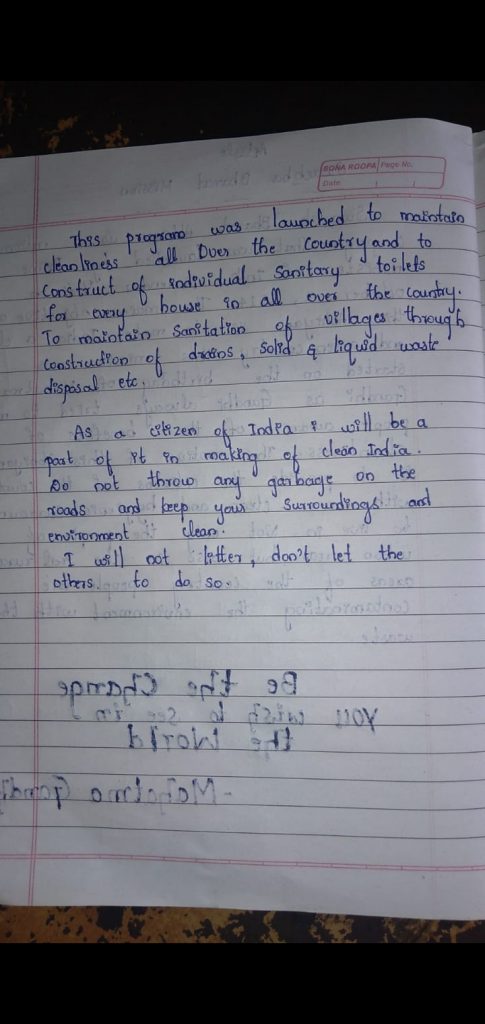 BONA ROOPA Page No.
Date
This program was launched to maintain
cleanliness all Over the Country and to
Construct of individual Sanitary toilets
for every house in all over the country.
To maintain Sanitation of villages through
construction of drains, solid & liquid waste
disposal etc.
As a citizen of India i will be a
part of it in making of clean India.
Do not throw any garbage on the
roads and keep your Surroundings and
environment clean.
I will not litter, don't let the
others to do so.
Be the Change
You wish to see in
the World